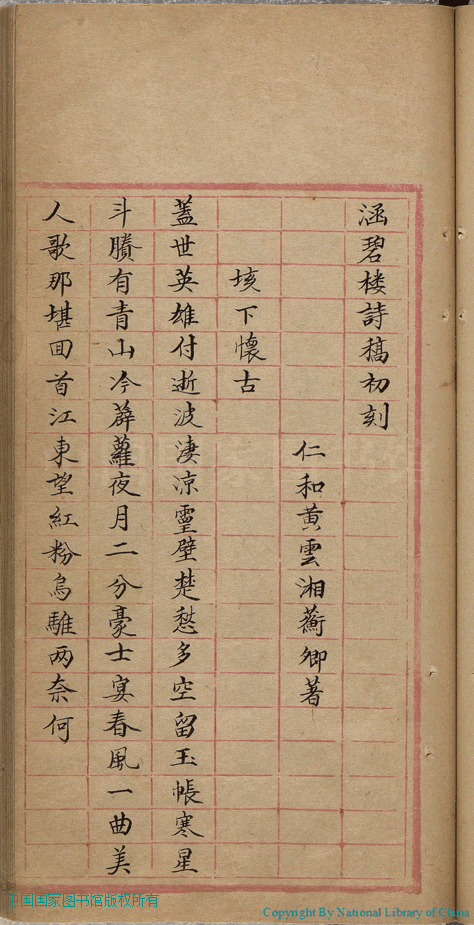 涵碧楼詩稿初刻
仁和黄雲湘蘅卿著
垓下懷古
蓋世英雄付逝波淒凉靈壁楚愁多空留玉帳寒星
斗賸有青山冷薜蘿夜月二分豪士宴春風一曲美
人歌那堪回首江東望紅粉烏騅两奈何
中国国家图书馆版权所有
Copyright By National Library of China